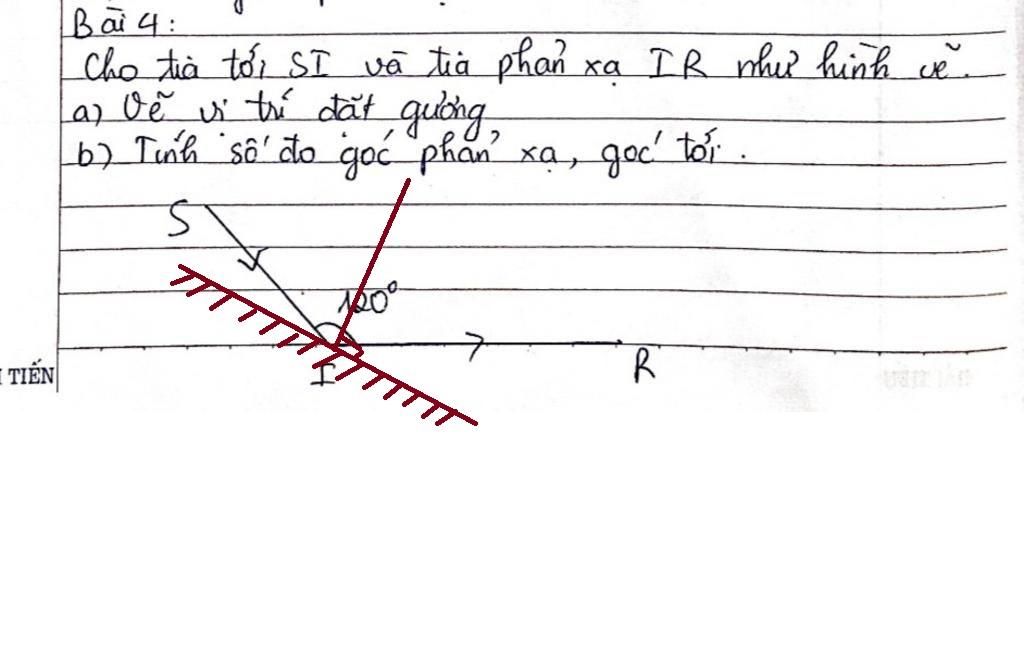 Bài 4:
Cho tia tới SI và tia phản xạ IR như hình vẽ.
a) Vẽ vị trí đặt gương
b) Tính số đo góc phản xạ, góc tới.
S
120°
I
R
TIẾN